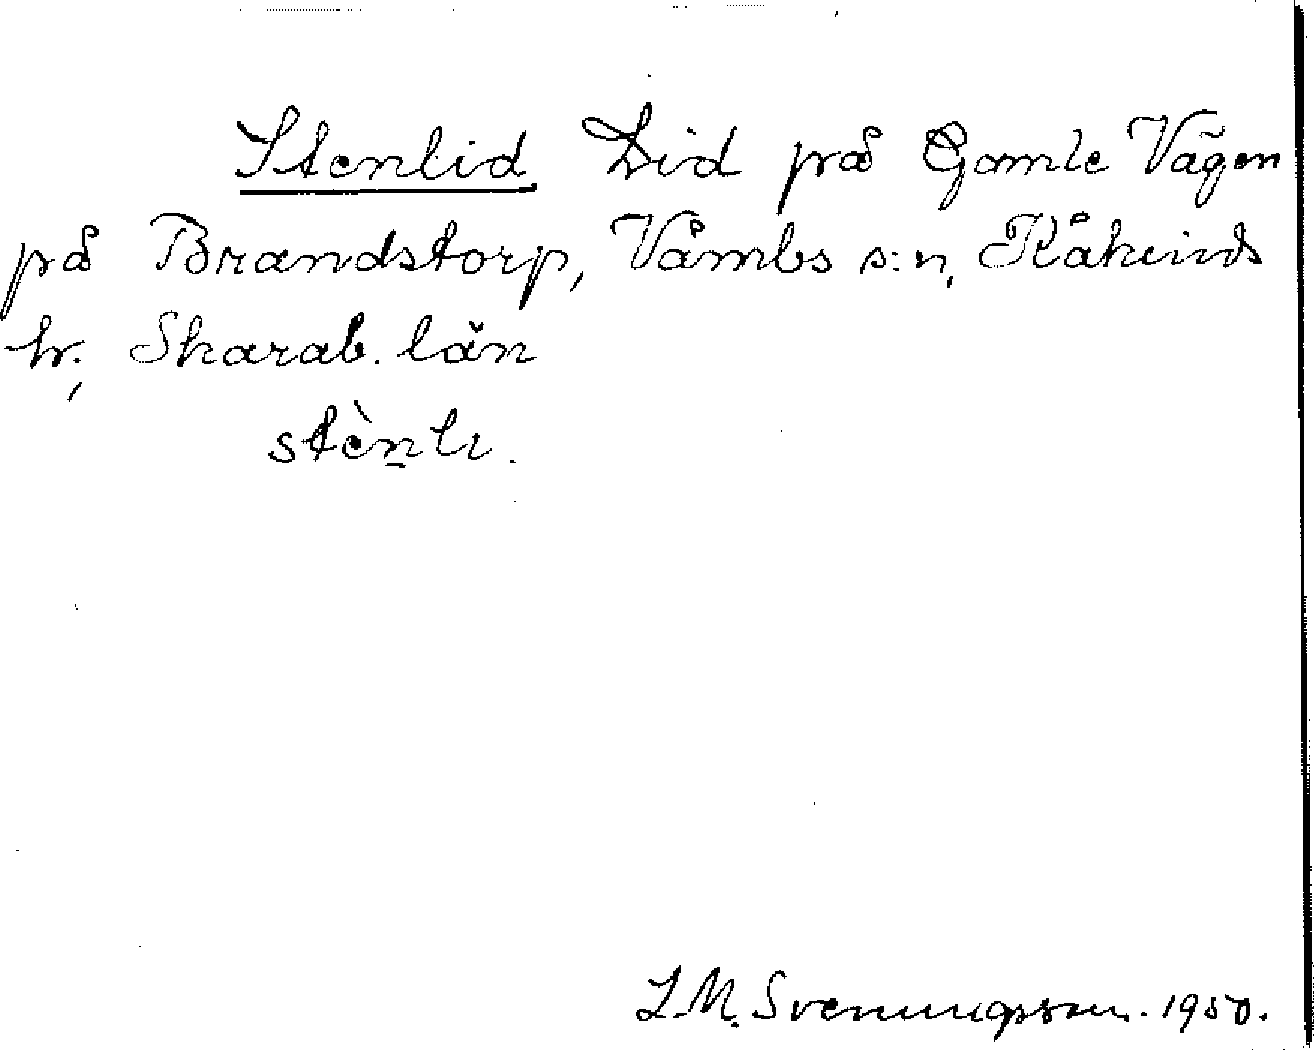 Stenlid Lid på Gamle Vägen
på Brandstorp, Våmbs s:n, Kåkinds
hr, Skarab. län
stènlı.
L.M. Svenungsson. 1950.